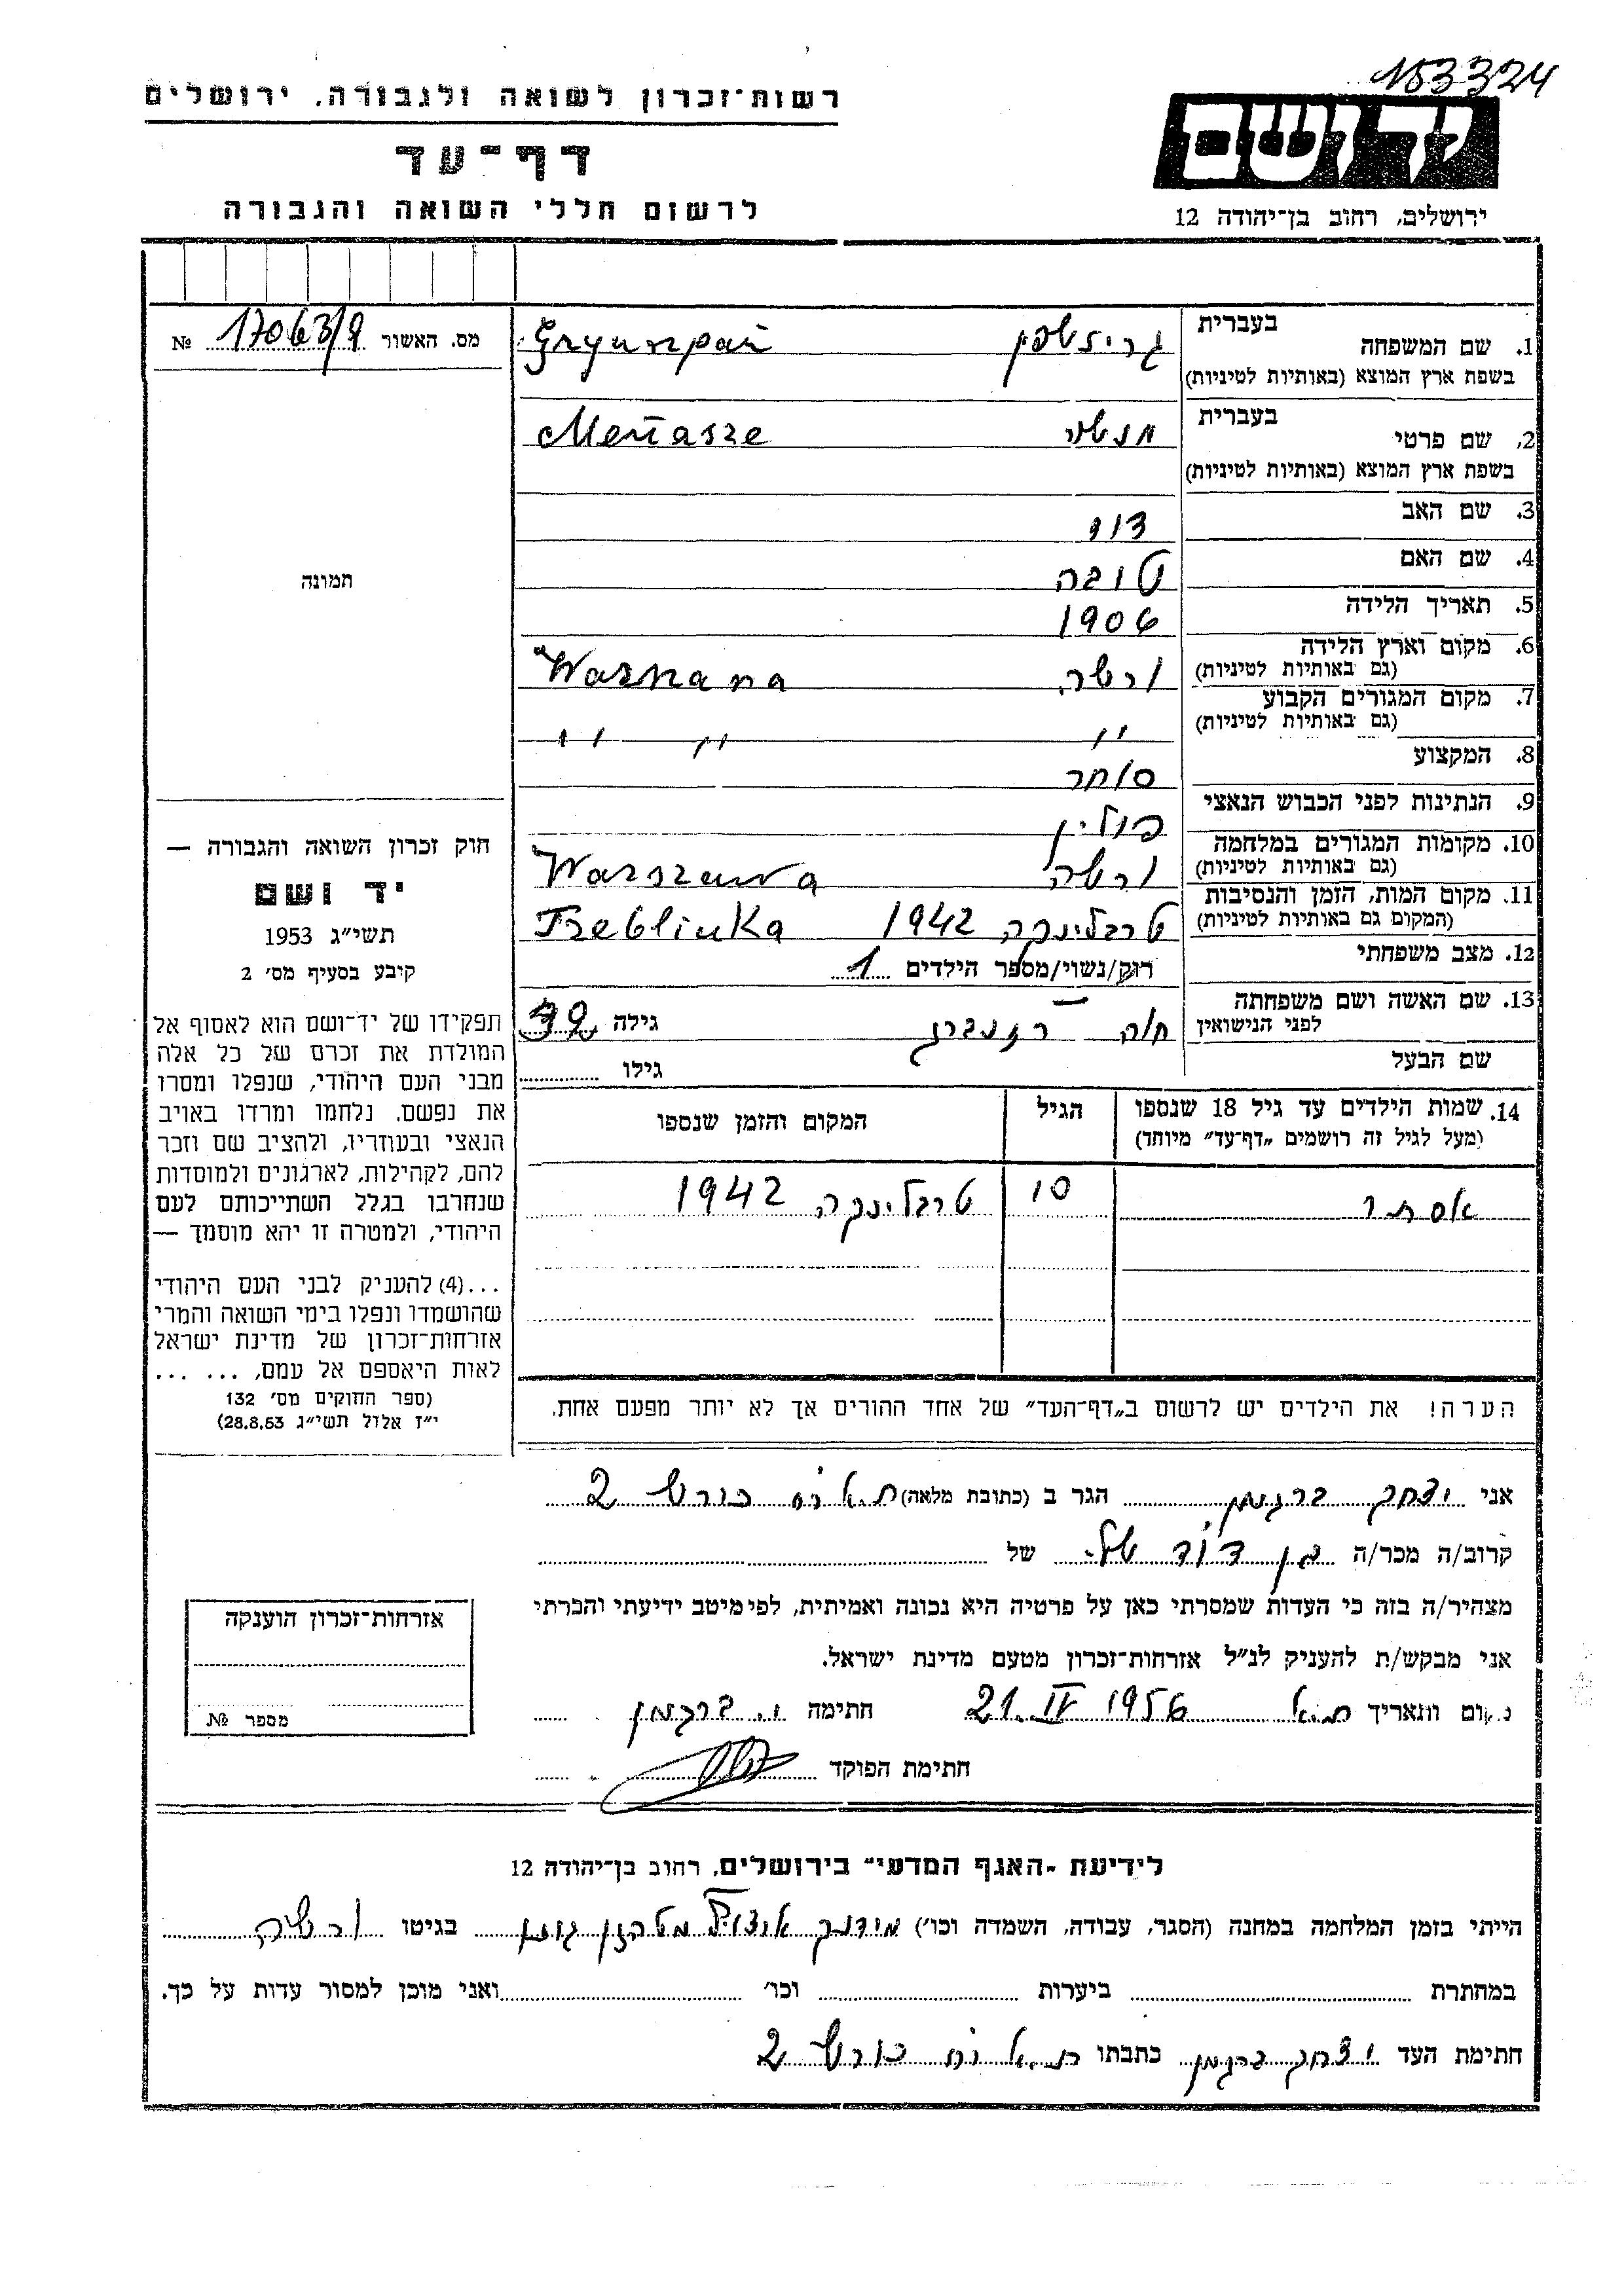 153324
רשות־זכרון לשואה ולגבורה, ירושלים
דף־עד
לרשום חללי השואה והגבורה
יד ושם
ירושלים, רחוב בן־יהודה 12
מס. האשור 17063/9 №
בעברית
1. שם המשפחה Grynszpan
בשפת ארץ המוצא (באותיות לטיניות)
בעברית
2. שם פרטי מנשה Menasze
בשפת ארץ המוצא (באותיות לטיניות)
3. שם האב דוד
4. שם האם טובה
5. תאריך הלידה 1906
6. מקום וארץ הלידה ורשה Warszawa
(גם באותיות לטיניות)
7. מקום המגורים הקבוע " " "
(גם באותיות לטיניות)
8. המקצוע סוחר
9. הנתינות לפני הכבוש הנאצי פולין
10. מקומות המגורים במלחמה ורשה Warszawa
(גם באותיות לטיניות)
11. מקום המות, הזמן והנסיבות טרבלינקה 1942 Treblinka
(המקום גם באותיות לטיניות)
12. מצב משפחתי רוק/נשוי/מספר הילדים 1
13. שם האשה ושם משפחתה חוה רוזנברג גילה
לפני הנישואין
שם הבעל גילו
14. שמות הילדים עד גיל 18 שנספו הגיל המקום והזמן שנספו
(מעל לגיל זה רושמים „דף־עד" מיוחד)
אסתר 10 טרבלינקה 1942
הערה! את הילדים יש לרשום ב„דף־העד" של אחד ההורים אך לא יותר מפעם אחת.
תמונה
חוק זכרון השואה והגבורה —
יד ושם
תשי״ג 1953
קובע בסעיף מס׳ 2
תפקידו של יד־ושם הוא לאסוף אל
המולדת את זכרם של כל אלה
מבני העם היהודי, שנפלו ומסרו
את נפשם. נלחמו ומרדו באויב
הנאצי ובעוזריו, ולהציב שם וזכר
להם, לקהילות, לארגונים ולמוסדות
שנחרבו בגלל השתייכותם לעם
היהודי, ולמטרה זו יהא מוסמך —
...(4) להעניק לבני העם היהודי
שהושמדו ונפלו בימי השואה והמרי
אזרחות־זכרון של מדינת ישראל
לאות היאספם אל עמם, ... ...
(ספר החוקים מס׳ 132
י״ז אלול תשי״ג 28.8.53)
אני יצחק ברגמן הגר ב (כתובת מלאה) ת.א. רח כורש 2
קרוב/ה מכר/ה בן דוד שלי של
מצהיר/ה בזה כי העדות שמסרתי כאן על פרטיה היא נכונה ואמיתית, לפי מיטב ידיעתי והכרתי
אני מבקש/ת להעניק לנ״ל אזרחות־זכרון מטעם מדינת ישראל.
מקום ותאריך ת.א. 21.IV 1956 חתימה י. ברגמן
חתימת הפוקד
אזרחות־זכרון הוענקה
מספר №
לידיעת „האגף המדעי" בירושלים, רחוב בן־יהודה 12
הייתי בזמן המלחמה במחנה (הסגר, עבודה, השמדה וכו׳) מידנק בגיטו ורשה
במחתרת ביערות וכו׳ ואני מוכן למסור עדות על כך.
חתימת העד יצחק ברגמן כתבתו ת.א. רח כורש 2